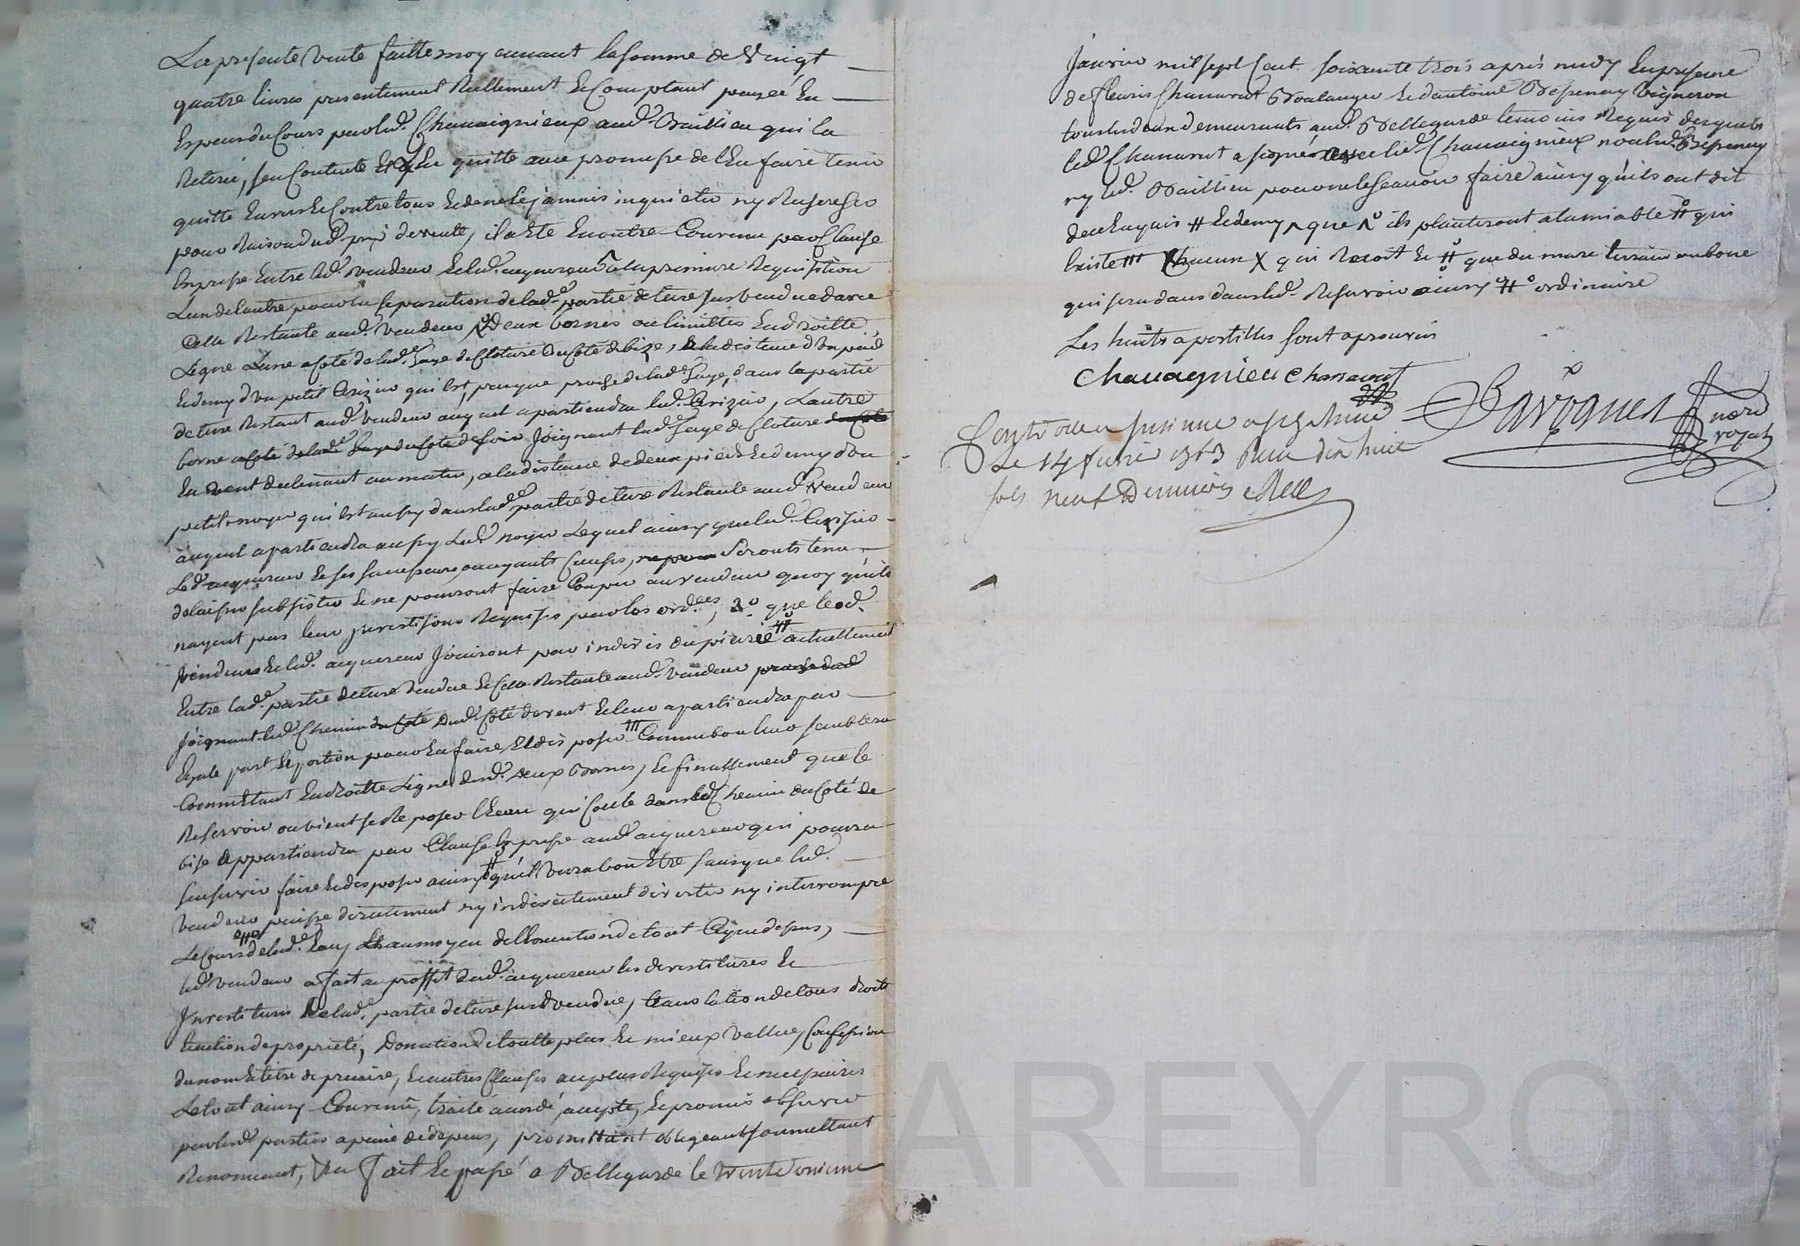 La presente vente faitte moyennant la somme de Vingt
quatre livres presentement Reellement et Comptant payée En
Especes du Cours par led. Chavaignieux aud. Baillieu qui la
Retiré, sen Contente et len quitte avec promesse de l'En faire tenir
quitte Envers et Contre tous et de ne le jamais inquieter ny Rechercher
pour Raison dud. prix de vente, il a Eté En outre Convenu par Clause
Expresse Entre led. vendeur et led. acquereur a la premiere Requisition
Lun de lautre pour la separation de lad.e partie de terre sus vendue davec
Celle Restante aud. vendeur deux bornes ou limittes En droitte
Ligne Lune a Coté de lad.e haye de Cloture du Coté de bize, a la distance d'un pied
Et demy d'un petit Cerizier qui Est presque proche de lad. haye, dans la partie
de terre Restant aud. vendeur auquel apartiendra led. Cerizier, Lautre
borne a Coté de lad.e haye du Coté de soir Joignant lad.e haye de Cloture
En vent declinant au matin, a la distance de deux pieds Et demy d'un
petit noyer qui Est aussy dans lad.e partie de terre Restante aud. Vendeur
auquel apartiendra aussy led. noyer Lequel ainsy que led. Cerisier
Led. acquereur et ses successeurs, ou ayants Causes, Seronts tenu
de laisser subsister et ne pourront faire Couper au vendeur quoy qu'ils
nayent pas leur juresti sons Requises par les ord.ces, 2.o que lesd.
Vendeur et led. acquereur Jouiront par indivis du actuellement
Entre lad.e partie de terre vendue et Celle Restante aud. Vendeur
Joignant led. Chemin dud. Coté de vent et leur apartiendra par
Egale part et portion pour En faire et disposer Comme bon leur semblera
Comm En droitte Ligne desd. deux Bornes, et finallement que le
Reservoir ou vient se Reposer l'Eau qui Coule dans led. Chemin du Coté de
bise appartiendra par Clause Expresse aud. acquereur qui pourra
sen servir faire et disposer ainsy qu'il verra bon Etre sans que led.
Vendeur puisse directement ny indirectement divertir ny interrompre
Le Cours de lad.e Eau Et au moyen de l'Execution de tout Ce que dessus,
led. vendeur a fait au proffit dud. acquereur les devestitures et
Investitures de lad.e partie de terre susd. vendue, translation de tous droits
Et action de proprieté, Donation de toutte plus et mieux vallue, Confession
du nom et titre de precaire, Et autres Clauses au plus Requises et necessaires
Le tout ainsy Convenu, traité acordé, accepté, et promis observer
par lesd. parties a peine de depens, promettant obligeant soumettant
Renonceant, &a Fait et passé a Bellegarde le trente unieme
Janvier mil sept Cent soixante trois apres midy En presence
de fleuris Chanavat Boulanger et d'antoine Bepenay vigneron
tous deux demeurants aud. Bellegarde temoins Requis desquels
led. Chanavat a signé avec led. Chavaignieux non led. Bepenay
ny led. Baillieu pour ne le Scavoir faire ainsy qu'ils ont dit
de ce Enquis # Et demy ^ que ^ ils planteront a lamiable # qui
Existe /// Chacun X qui Recoit Et # que du mare terrain ou boue
qui sera dans dans led. Reservoir ainsy # ordinaire
Les huits apostilles sont aprouvés
Chavagnieu Chanavat
Barioguet no.re
royal
Controllé a
Le 14 fevrier 1763 Reçu dix huit
sols neuf Deniers
CHAREYRON